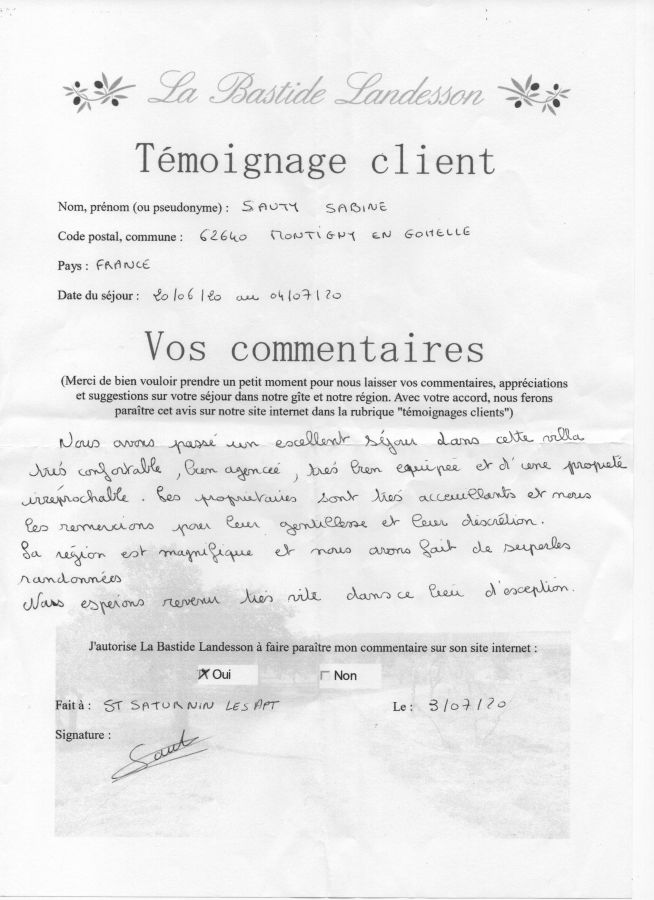 La Bastide Landesson
Témoignage client
Nom, prénom (ou pseudonyme) : SAUTY SABINE
Code postal, commune : 62640 MONTIGNY EN GOHELLE
Pays : FRANCE
Date du séjour : 20/06/20 au 04/07/20
Vos commentaires
(Merci de bien vouloir prendre un petit moment pour nous laisser vos commentaires, appréciations
et suggestions sur votre séjour dans notre gîte et notre région. Avec votre accord, nous ferons
paraître cet avis sur notre site internet dans la rubrique "témoignages clients")
Nous avons passé un excellent séjour dans cette villa
très confortable, bien agencée, très bien equipée et d'une propreté
irréprochable. Les propriétaires sont très accueillants et nous
les remercions pour leur gentillesse et leur discrétion.
La région est magnifique et nous avons fait de superbes
randonnées
Nous espérons revenir très vite dans ce lieu d'exception.
J'autorise La Bastide Landesson à faire paraître mon commentaire sur son site internet :
X Oui Non
Fait à : ST SATURNIN LES APT Le : 3/07/20
Signature :
Sauty